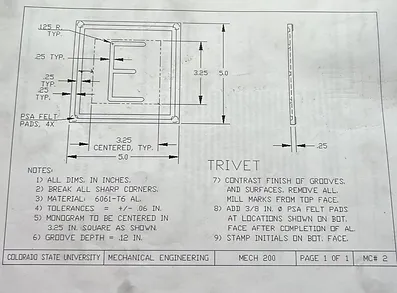 .125 R.
TYP.
.25 TYP.
.25
TYP.
.25
TYP.
PSA FELT
PADS, 4X
3.25
5.0
3.25
CENTERED, TYP.
5.0
.25
E
TRIVET
NOTES:
1) ALL DIMS. IN INCHES.
2) BREAK ALL SHARP CORNERS.
3) MATERIAL: 6061-T6 AL.
4) TOLERANCES = +/- .06 IN.
5) MONOGRAM TO BE CENTERED IN
3.25 IN. SQUARE AS SHOWN.
6) GROOVE DEPTH = .12 IN.
7) CONTRAST FINISH OF GROOVES
AND SURFACES. REMOVE ALL
MILL MARKS FROM TOP FACE.
8) ADD 3/8 IN. Ø PSA FELT PADS
AT LOCATIONS SHOWN ON BOT.
FACE AFTER COMPLETION OF AL.
9) STAMP INITIALS ON BOT. FACE.
COLORADO STATE UNIVERSITY MECHANICAL ENGINEERING MECH 200 PAGE 1 OF 1 MC# 2